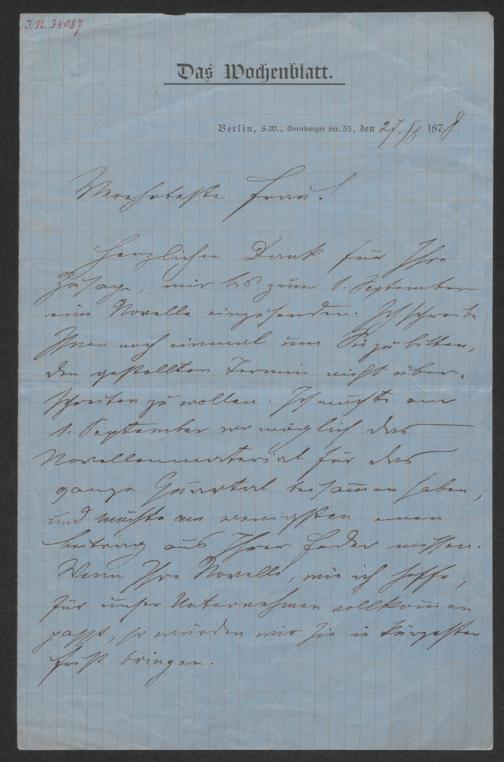 J.N. 34087
Das Wochenblatt.
Berlin, S.W., Bernburger Str. 35, den 27. 1878
Verehrteste Frau!
Herzlichen Dank für Ihre
Zusage, mir bis zum 1. September
eine Novelle einzusenden. Ich schreibe
Ihnen noch einmal um Sie zu bitten,
den gestellten Termin nicht über-
schreiten zu wollen. Ich möchte am
1. September wo möglich das
Novellenmaterial für das
ganze Quartal beisammen haben,
und möchte am wenigsten einen
Beitrag aus Ihrer Feder missen.
Wenn Ihre Novelle, wie ich hoffe,
für unser Unternehmen vollkommen
passt, so würden wir sie in kürzester
Frist bringen.